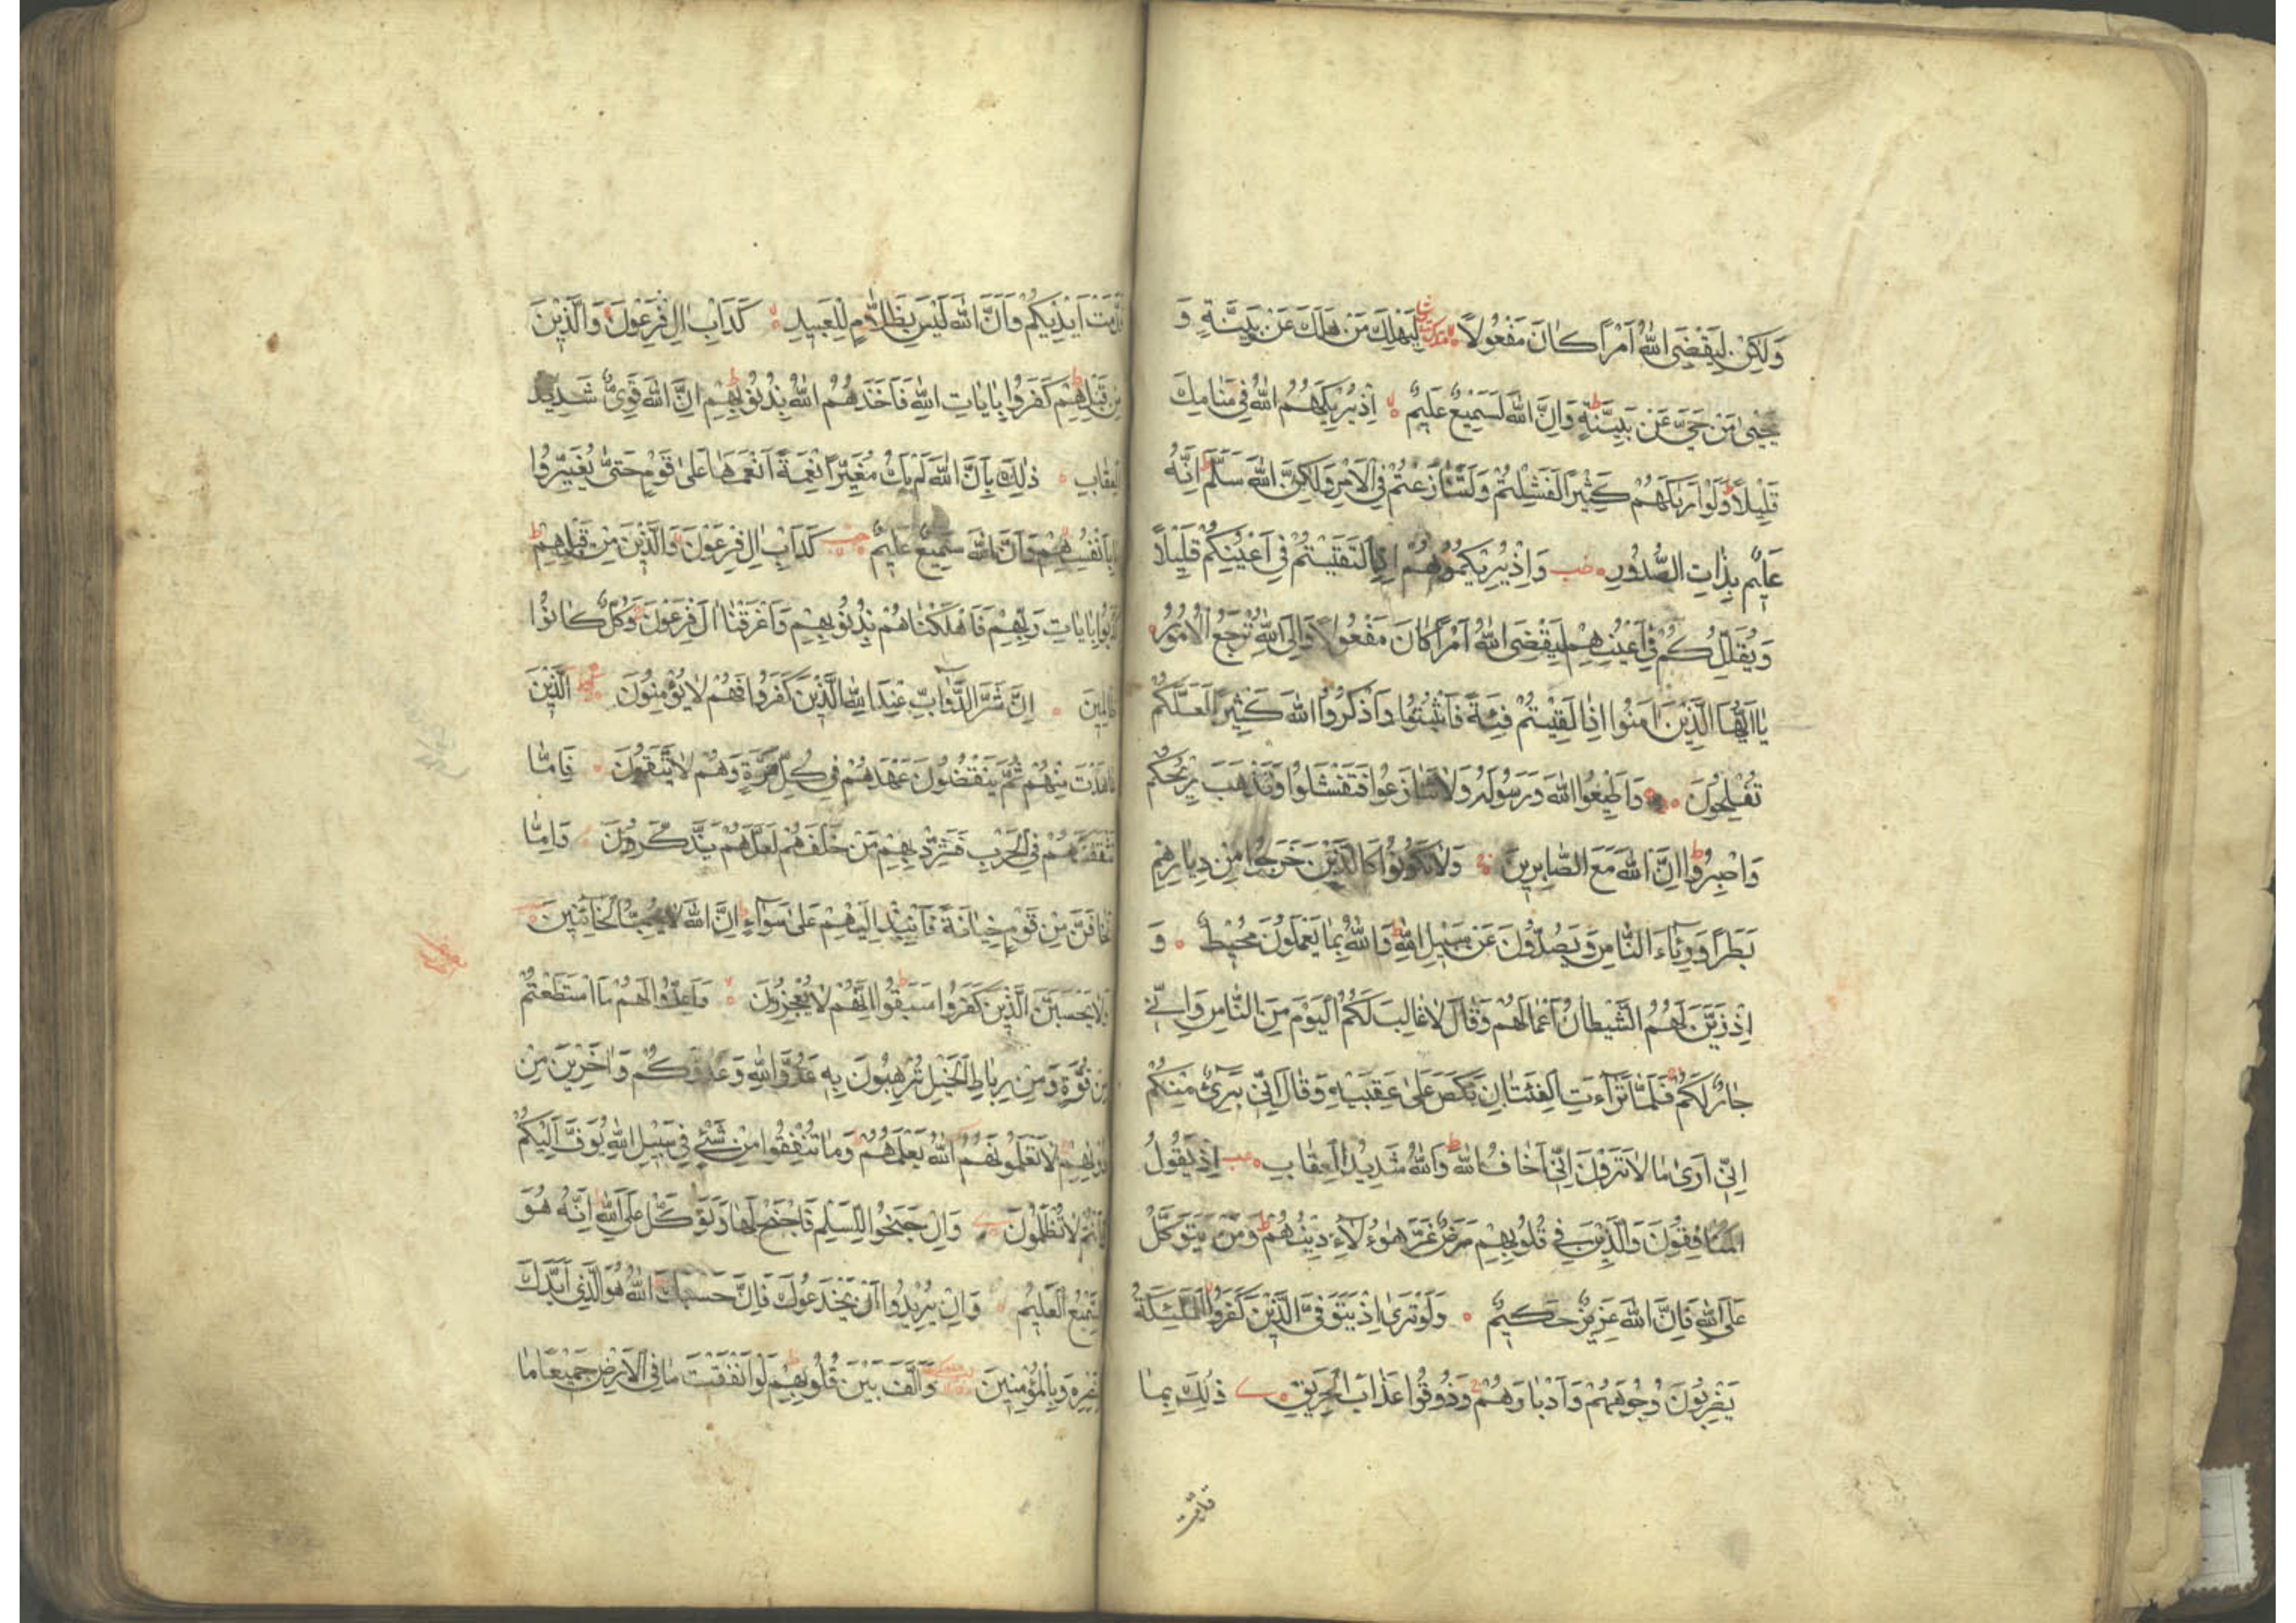 وَلَكِنْ لِيَقْضِيَ اللهُ اَمْرًا كَانَ مَفْعُولًا لِيَهْلِكَ مَنْ هَلَكَ عَنْ بَيِّنَةٍ وَ
يَحْيٰى مَنْ حَيَّ عَنْ بَيِّنَةٍ وَاِنَّ اللهَ لَسَمِيعٌ عَلِيمٌ اِذْ يُرِيكَهُمُ اللهُ فِي مَنَامِكَ
قَلِيلًا وَلَوْ اَرٰيكَهُمْ كَثِيرًا لَفَشِلْتُمْ وَلَتَنَازَعْتُمْ فِي الْاَمْرِ وَلَكِنَّ اللهَ سَلَّمَ اِنَّهُ
عَلِيمٌ بِذَاتِ الصُّدُورِ وَاِذْ يُرِيكُمُوهُمْ اِذِ الْتَقَيْتُمْ فِي اَعْيُنِكُمْ قَلِيلًا
وَيُقَلِّلُكُمْ فِي اَعْيُنِهِمْ لِيَقْضِيَ اللهُ اَمْرًا كَانَ مَفْعُولًا وَاِلَى اللهِ تُرْجَعُ الْاُمُورُ
يَا اَيُّهَا الَّذِينَ اٰمَنُوا اِذَا لَقِيتُمْ فِئَةً فَاثْبُتُوا وَاذْكُرُوا اللهَ كَثِيرًا لَعَلَّكُمْ
تُفْلِحُونَ وَاَطِيعُوا اللهَ وَرَسُولَهُ وَلَا تَنَازَعُوا فَتَفْشَلُوا وَتَذْهَبَ رِيحُكُمْ
وَاصْبِرُوا اِنَّ اللهَ مَعَ الصَّابِرِينَ وَلَا تَكُونُوا كَالَّذِينَ خَرَجُوا مِنْ دِيَارِهِمْ
بَطَرًا وَرِئَاءَ النَّاسِ وَيَصُدُّونَ عَنْ سَبِيلِ اللهِ وَاللهُ بِمَا يَعْمَلُونَ مُحِيطٌ وَ
اِذْ زَيَّنَ لَهُمُ الشَّيْطَانُ اَعْمَالَهُمْ وَقَالَ لَا غَالِبَ لَكُمُ الْيَوْمَ مِنَ النَّاسِ وَاِنِّي
جَارٌ لَكُمْ فَلَمَّا تَرَاءَتِ الْفِئَتَانِ نَكَصَ عَلَى عَقِبَيْهِ وَقَالَ اِنِّي بَرِيءٌ مِنْكُمْ
اِنِّي اَرٰى مَا لَا تَرَوْنَ اِنِّي اَخَافُ اللهَ وَاللهُ شَدِيدُ الْعِقَابِ اِذْ يَقُولُ
الْمُنَافِقُونَ وَالَّذِينَ فِي قُلُوبِهِمْ مَرَضٌ غَرَّ هٰؤُلَاءِ دِينُهُمْ وَمَنْ يَتَوَكَّلْ
عَلَى اللهِ فَاِنَّ اللهَ عَزِيزٌ حَكِيمٌ وَلَوْ تَرٰى اِذْ يَتَوَفَّى الَّذِينَ كَفَرُوا الْمَلٰئِكَةُ
يَضْرِبُونَ وُجُوهَهُمْ وَاَدْبَارَهُمْ وَذُوقُوا عَذَابَ الْحَرِيقِ ذٰلِكَ بِمَا
قدمت
قَدَّمَتْ اَيْدِيكُمْ وَاَنَّ اللهَ لَيْسَ بِظَلَّامٍ لِلْعَبِيدِ كَدَاْبِ اٰلِ فِرْعَوْنَ وَالَّذِينَ
مِنْ قَبْلِهِمْ كَفَرُوا بِاٰيَاتِ اللهِ فَاَخَذَهُمُ اللهُ بِذُنُوبِهِمْ اِنَّ اللهَ قَوِيٌّ شَدِيدُ
الْعِقَابِ ذٰلِكَ بِاَنَّ اللهَ لَمْ يَكُ مُغَيِّرًا نِعْمَةً اَنْعَمَهَا عَلٰى قَوْمٍ حَتّٰى يُغَيِّرُوا
مَا بِاَنْفُسِهِمْ وَاَنَّ اللهَ سَمِيعٌ عَلِيمٌ كَدَاْبِ اٰلِ فِرْعَوْنَ وَالَّذِينَ مِنْ قَبْلِهِمْ
كَذَّبُوا بِاٰيَاتِ رَبِّهِمْ فَاَهْلَكْنَاهُمْ بِذُنُوبِهِمْ وَاَغْرَقْنَا اٰلَ فِرْعَوْنَ وَكُلٌّ كَانُوا
ظَالِمِينَ اِنَّ شَرَّ الدَّوَابِّ عِنْدَ اللهِ الَّذِينَ كَفَرُوا فَهُمْ لَا يُؤْمِنُونَ الَّذِينَ
عَاهَدْتَ مِنْهُمْ ثُمَّ يَنْقُضُونَ عَهْدَهُمْ فِي كُلِّ مَرَّةٍ وَهُمْ لَا يَتَّقُونَ فَاِمَّا
تَثْقَفَنَّهُمْ فِي الْحَرْبِ فَشَرِّدْ بِهِمْ مَنْ خَلْفَهُمْ لَعَلَّهُمْ يَذَّكَّرُونَ وَاِمَّا
تَخَافَنَّ مِنْ قَوْمٍ خِيَانَةً فَانْبِذْ اِلَيْهِمْ عَلٰى سَوَاءٍ اِنَّ اللهَ لَا يُحِبُّ الْخَائِنِينَ
وَلَا يَحْسَبَنَّ الَّذِينَ كَفَرُوا سَبَقُوا اِنَّهُمْ لَا يُعْجِزُونَ وَاَعِدُّوا لَهُمْ مَا اسْتَطَعْتُمْ
مِنْ قُوَّةٍ وَمِنْ رِبَاطِ الْخَيْلِ تُرْهِبُونَ بِهِ عَدُوَّ اللهِ وَعَدُوَّكُمْ وَاٰخَرِينَ مِنْ
دُونِهِمْ لَا تَعْلَمُونَهُمُ اللهُ يَعْلَمُهُمْ وَمَا تُنْفِقُوا مِنْ شَيْءٍ فِي سَبِيلِ اللهِ يُوَفَّ اِلَيْكُمْ
وَاَنْتُمْ لَا تُظْلَمُونَ وَاِنْ جَنَحُوا لِلسَّلْمِ فَاجْنَحْ لَهَا وَتَوَكَّلْ عَلَى اللهِ اِنَّهُ هُوَ
السَّمِيعُ الْعَلِيمُ وَاِنْ يُرِيدُوا اَنْ يَخْدَعُوكَ فَاِنَّ حَسْبَكَ اللهُ هُوَ الَّذِي اَيَّدَكَ
بِنَصْرِهِ وَبِالْمُؤْمِنِينَ وَاَلَّفَ بَيْنَ قُلُوبِهِمْ لَوْ اَنْفَقْتَ مَا فِي الْاَرْضِ جَمِيعًا مَا